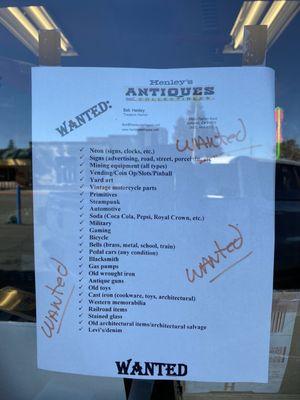 Henley's
ANTIQUES
COLLECTIBLES
Bob Henley
WANTED:
WANTED
Neon (signs, clocks, etc.)
Signs (advertising, road, street, porcelain, etc.)
Mining equipment (all types)
Vending/Coin Op/Slots/Pinball
Yard art
Vintage motorcycle parts
Primitives
Steampunk
Automotive
Soda (Coca Cola, Pepsi, Royal Crown, etc.)
Military
Gaming
Bicycle
Bells (brass, metal, school, train)
Pedal cars (any condition)
Blacksmith
Gas pumps
Old wrought iron
Antique guns
Old toys
Cast iron (cookware, toys, architectural)
Western memorabilia
Railroad items
Stained glass
Old architectural items/architectural salvage
Levi's/denim
WANTED
WANTED
WANTED